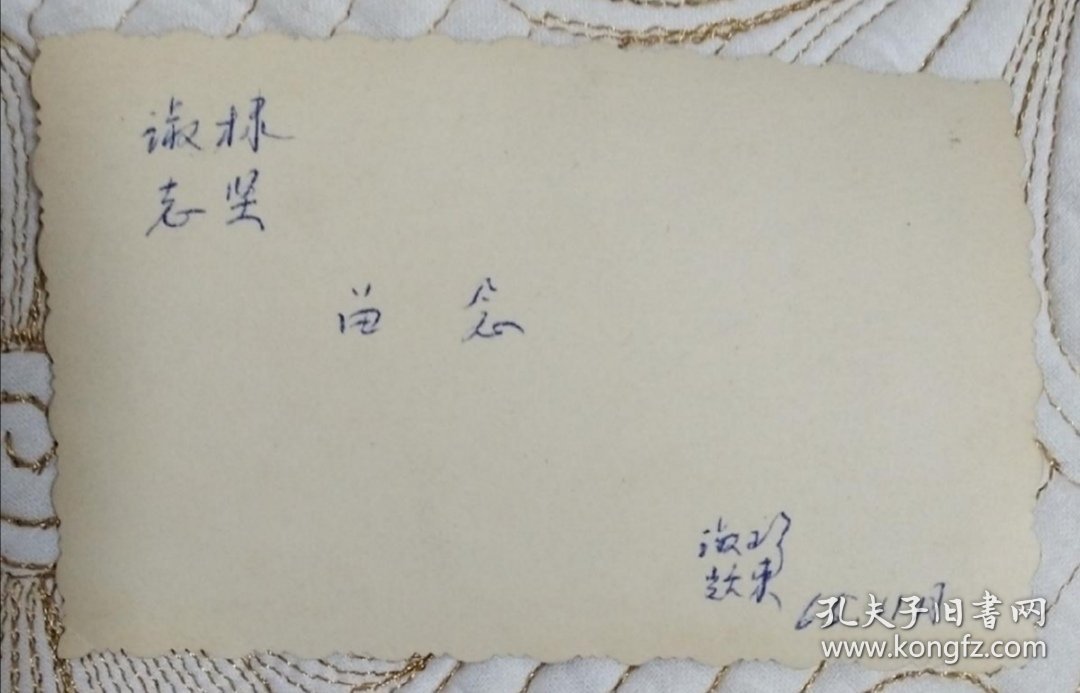 淑棣
志坚
留 念
淑珍
孔夫子旧书网
www.kongfz.com